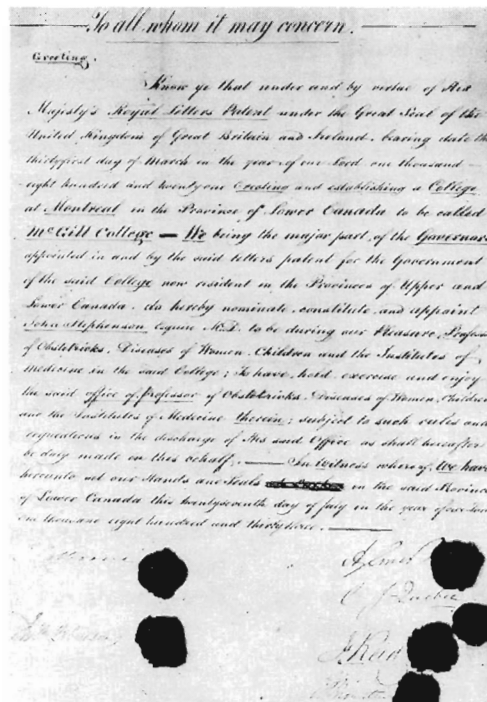 To all whom it may concern.
Greeting.
Know ye that under and by virtue of His
Majesty's Royal Letters Patent under the Great Seal of the
United Kingdom of Great Britain and Ireland, bearing date the
thirtyfirst day of March in the year of our Lord one thousand
eight hundred and twenty one Erecting and establishing a College
at Montreal in the Province of Lower Canada to be called
McGill College — We being the major part of the Governors
appointed in and by the said letters patent for the Government
of the said College now resident in the Provinces of Upper and
Lower Canada, do hereby nominate, constitute and appoint
John Stephenson Esquire M.D. to be during our Pleasure, Professor
of Obstetricks, Diseases of Women, Children and the Institutes of
Medicine in the said College; To have, hold, exercise and enjoy
the said office of Professor of Obstetricks, Diseases of Women, Children
and the Institutes of Medicine therein; subject to such rules and
regulations in the discharge of His said Office as shall hereafter
be duly made on this behalf; — In Witness whereof, We have
hereunto set our Hands and Seals in the said Province
of Lower Canada this twentyseventh day of July in the year of our Lord
one thousand eight hundred and thirty three.
Aylmer
C. J. Quebec
J. Reid